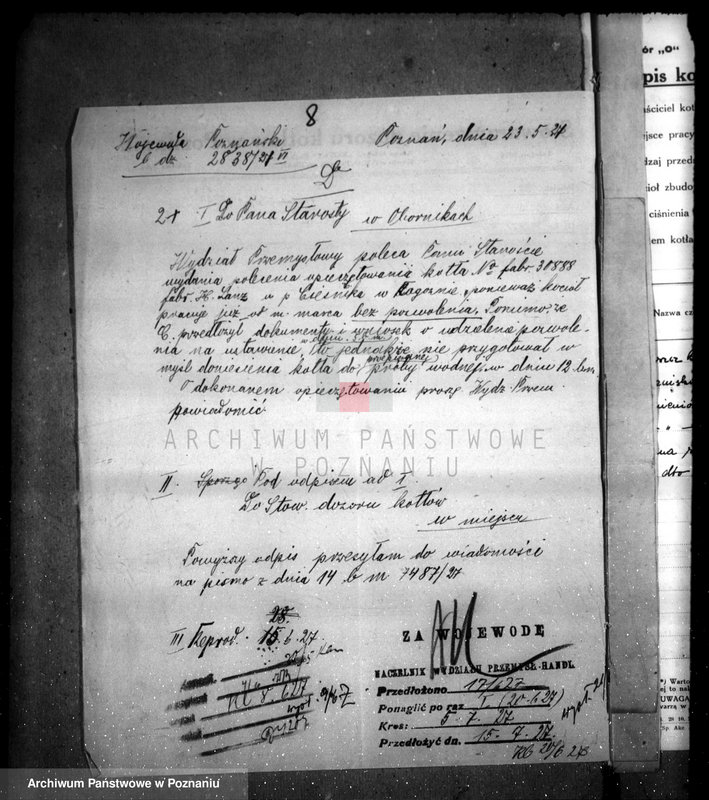 8
Wojewoda Poznański
Poznań, dnia 23.5.27
L. dz. 2838/27 III
Do
I Do Pana Starosty w Obornikach
Wydział Przemysłowy poleca Panu Staroście
wydania polecenia opieczętowania kotła No fabr. 30888
fabr. H. Lanz u p. Cieśnika w Rogoźnie, ponieważ kocioł
pracuje już od m. marca bez pozwolenia. Pomimo, że
C. przedłożył dokumenty i wniosek o udzielenie pozwole-
nia na ustawienie, to jednakże nie przygotował w
myśl doniesienia kotła do próby wodnej w dniu 12 bm.
O dokonanem opieczętowaniu proszę Wydz. Przem.
powiadomić.
ARCHIWUM PAŃSTWOWE
W POZNANIU
II. Pod odpisem ad I.
Do Stow. dozoru kotłów
w miejscu
Powyższy odpis przesyłam do wiadomości
na pismo z dnia 14 b m 7487/27
28.
III Reprod. 15.6.27
ZA WOJEWODĘ
NACZELNIK WYDZIAŁU PRZEMYSŁ-HANDL
Przedłożono 17/6 27
Ponaglić po raz I (20.6.27)
Kres: 5.7.27
Przedłożyć dn. 15.7.27
ór „O"
pis ko
ściciel kot
jsce pracy
dzaj przeds
ził zbudo
ciśnienia
em kotła
Nazwa cz
*) Warto
UWAGA
Sp. Akc.
Archiwum Państwowe w Poznaniu